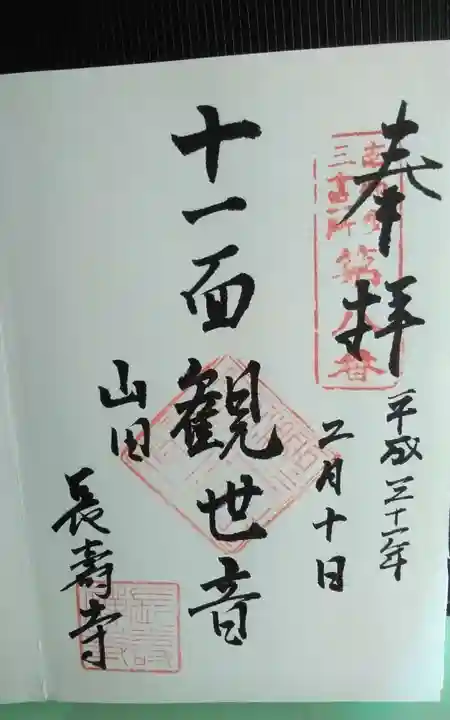 奉拝
第八番
平成三十一年
二月十日
十一面観世音
山田
長壽寺